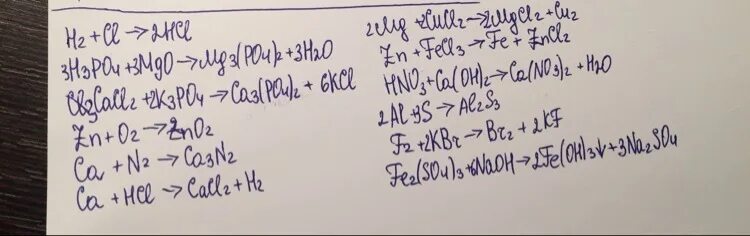 H2 + Cl → 2HCl
3H3PO4 + 3MgO → Mg3(PO4)2 + 3H2O
3CaCl2 + 2K3PO4 → Ca3(PO4)2 + 6KCl
Zn + O2 → ZnO2
Ca + N2 → Ca3N2
Ca + HCl → CaCl2 + H2
2Mg + CuCl2 → 2MgCl2 + Cu2
Zn + FeCl3 → Fe + ZnCl2
HNO3 + Ca(OH)2 → Ca(NO3)2 + H2O
2Al + 3S → Al2S3
F2 + 2KBr → Br2 + 2KF
Fe2(SO4)3 + 6NaOH → 2Fe(OH)3↓ + 3Na2SO4